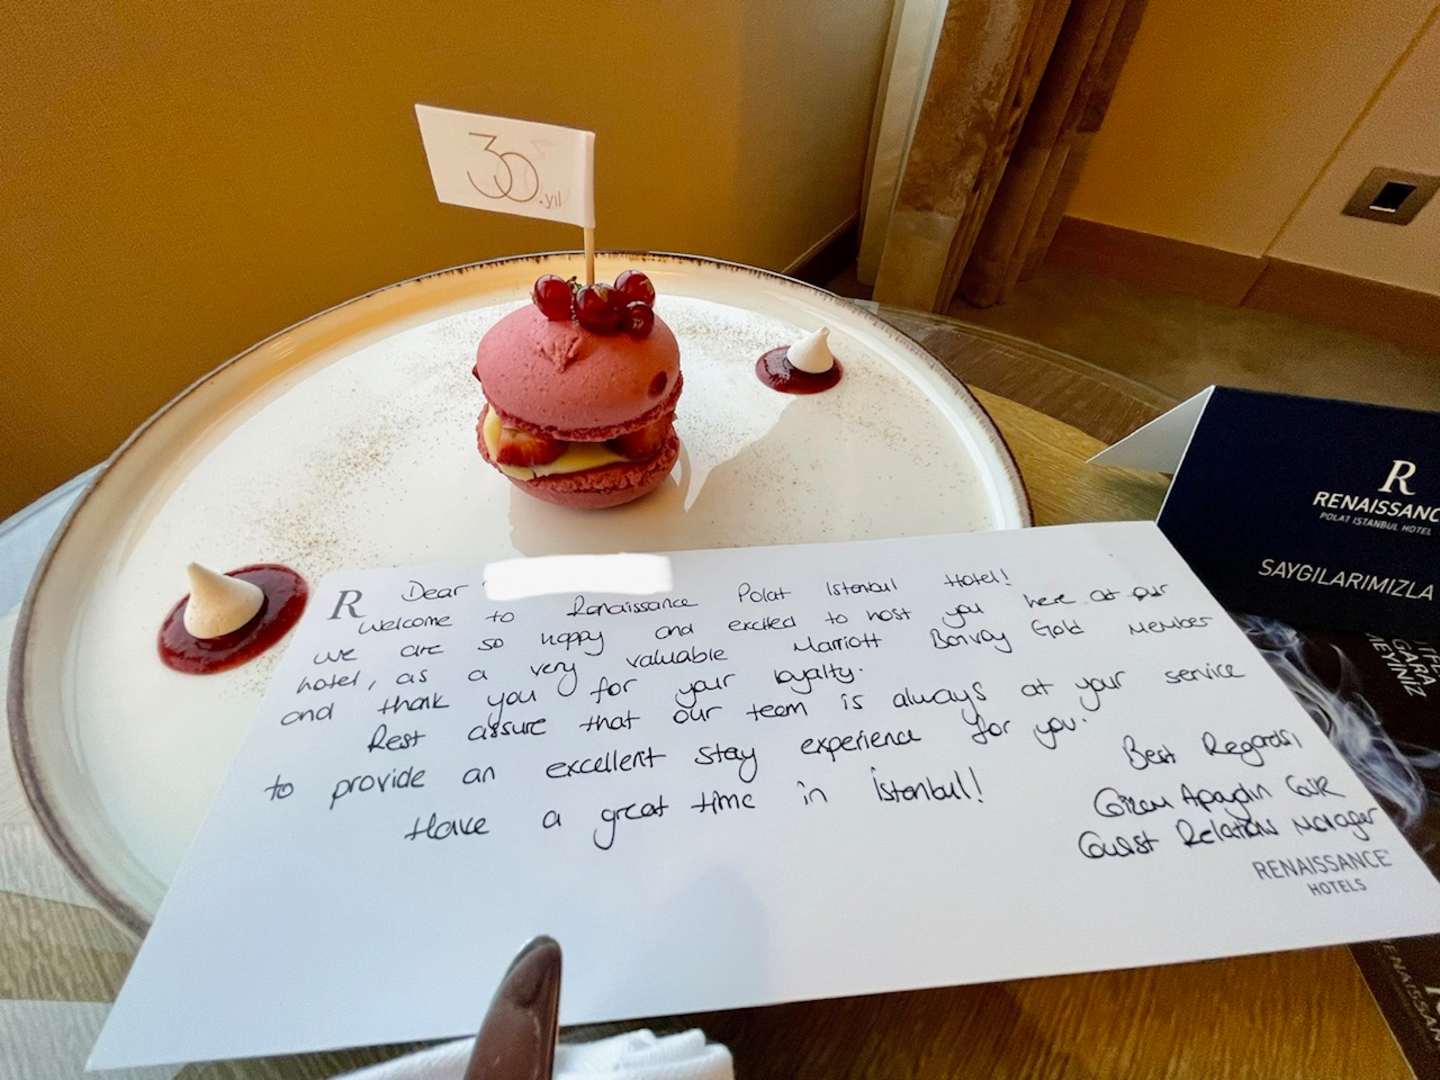 30.yıl
R
RENAISSANC
POLAT ISTANBUL HOTEL
SAYGILARIMIZLA
GARA
MEYİNİZ
R Dear
Welcome to Renaissance Polat Istenbul Hotel!
we are so happy and excited to host you here at our
hotel, as a very valuable Marriott Bonvoy Gold Member
and thank you for your loyalty.
Rest assure that our team is always at your service
to provide an excellent stay experience for you.
Have a great time in İstanbul!
Best Regards,
Apaydın
Guest Relations Manager
RENAISSANCE
HOTELS